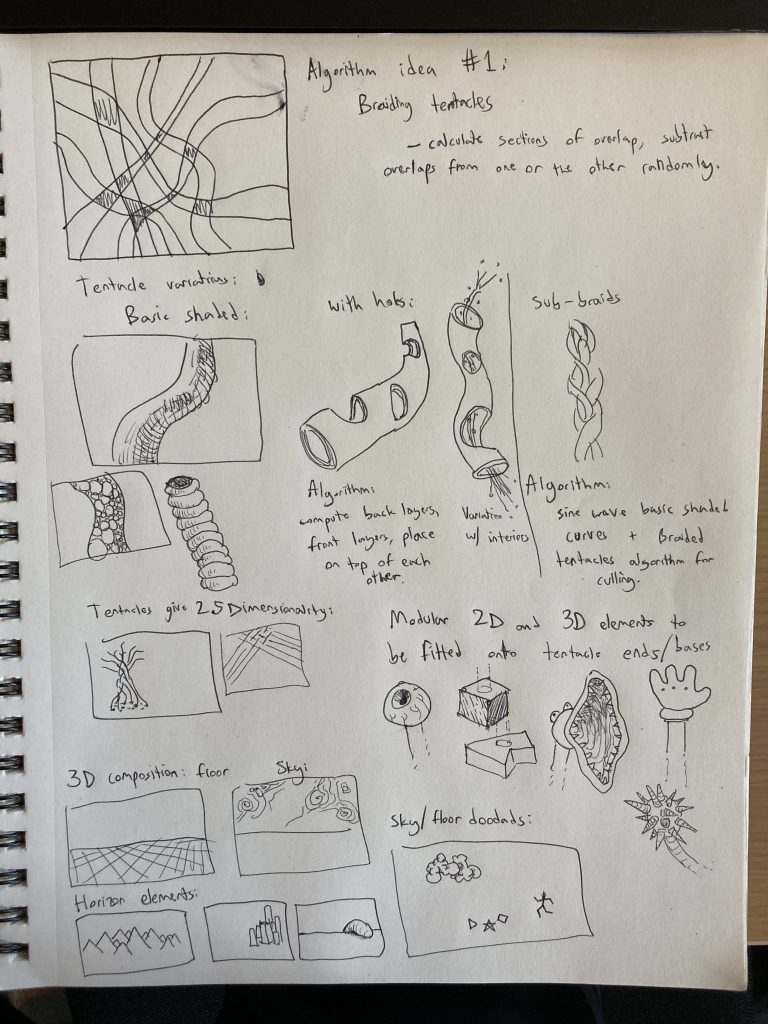 Algorithm idea #1:
Braiding tentacles
- calculate sections of overlap, subtract
overlaps from one or the other randomly.
Tentacle variations:
Basic shaded:
with holes:
Sub-braids
Algorithm:
compute back layers,
front layers, place
on top of each
other.
Variation:
w/ interiors
Algorithm:
sine wave basic shaded
curves + Braided
tentacles algorithm for
culling.
Tentacles give 2.5 Dimensionality:
Modular 2D and 3D elements to
be fitted onto tentacle ends/bases
3D composition: floor
Sky:
Sky/floor doodads:
Horizon elements: